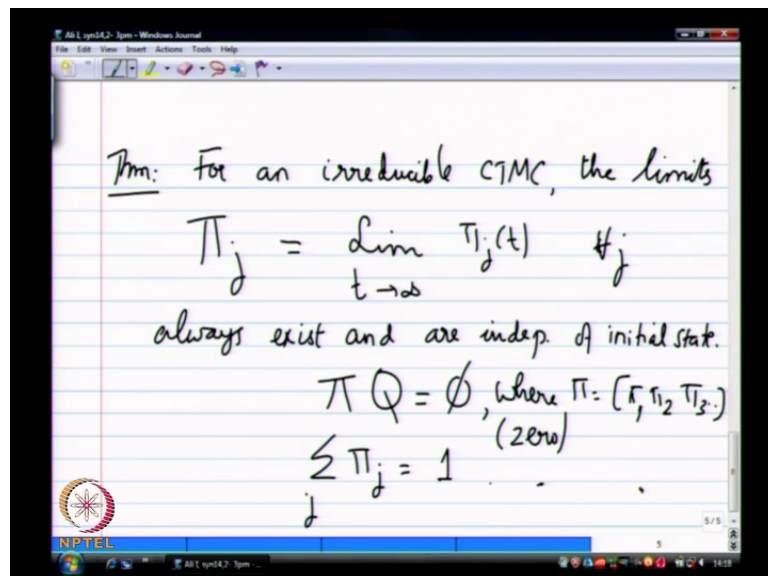 Ali I, syn14,2- 3pm - Windows Journal
File Edit View Insert Actions Tools Help
Thm: For an irreducible CTMC, the limits
Π_j = Lim_{t→∞} Π_j(t) ∀j
always exist and are indep. of initial state.
Π Q = ∅, where Π = [Π_1 Π_2 Π_3..)
(zero)
Σ_j Π_j = 1 . . .
5/5
5
NPTEL
Ali I, syn14,2- 3pm -...
14:18